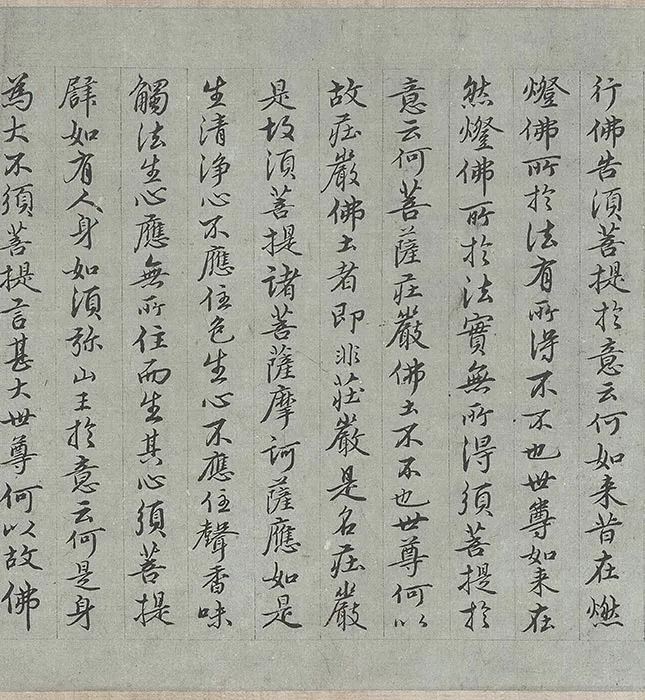 行佛告須菩提於意云何如来昔在燃
燈佛所於法有所得不不也世尊如来在
然燈佛所於法實無所得須菩提於
意云何菩薩莊嚴佛土不不也世尊何以
故莊嚴佛土者即非莊嚴是名莊嚴
是故須菩提諸菩薩摩訶薩應如是
生清淨心不應住色生心不應住聲香味
觸法生心應無所住而生其心須菩提
辟如有人身如須弥山王於意云何是身
為大不須菩提言甚大世尊何以故佛